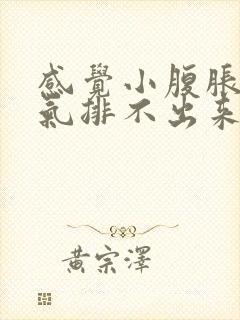 感覺小腹脹
氣排不出來
黃宗澤